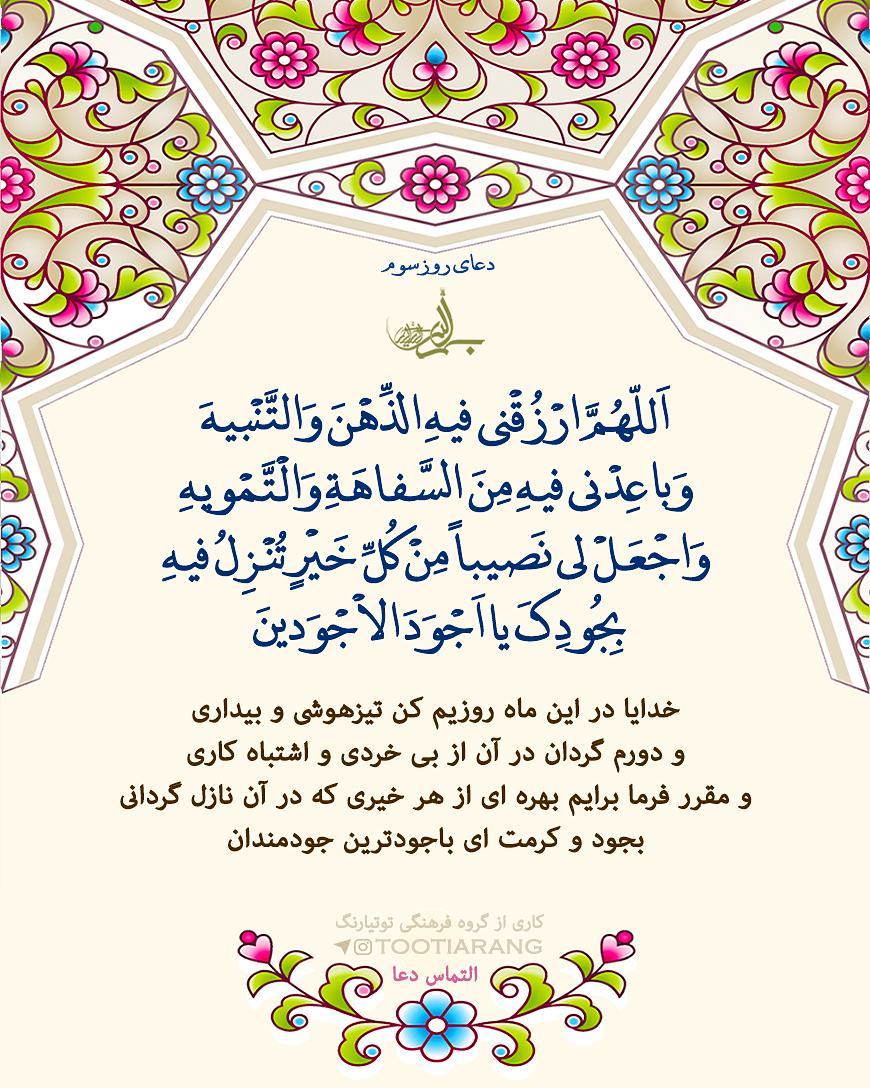 دعای روز سوم
اَللّهُمَّ ارْزُقْنی فیهِ الذِّهْنَ وَالتَّنْبیهَ
وَباعِدْنی فیهِ مِنَ السَّفاهَةِ وَالْتَّمْویهِ
وَاجْعَلْ لی نَصیباً مِنْ كُلِّ خَیْرٍ تُنْزِلُ فیهِ
بِجُودِکَ یا اَجْوَدَ الاْجْوَدینَ
خدایا در این ماه روزیم کن تیزهوشی و بیداری
و دورم گردان در آن از بی خردی و اشتباه کاری
و مقرر فرما برایم بهره ای از هر خیری که در آن نازل گردانی
بجود و کرمت ای باجودترین جودمندان
کاری از گروه فرهنگی توتیارنگ
TOOTIARANG
التماس دعا